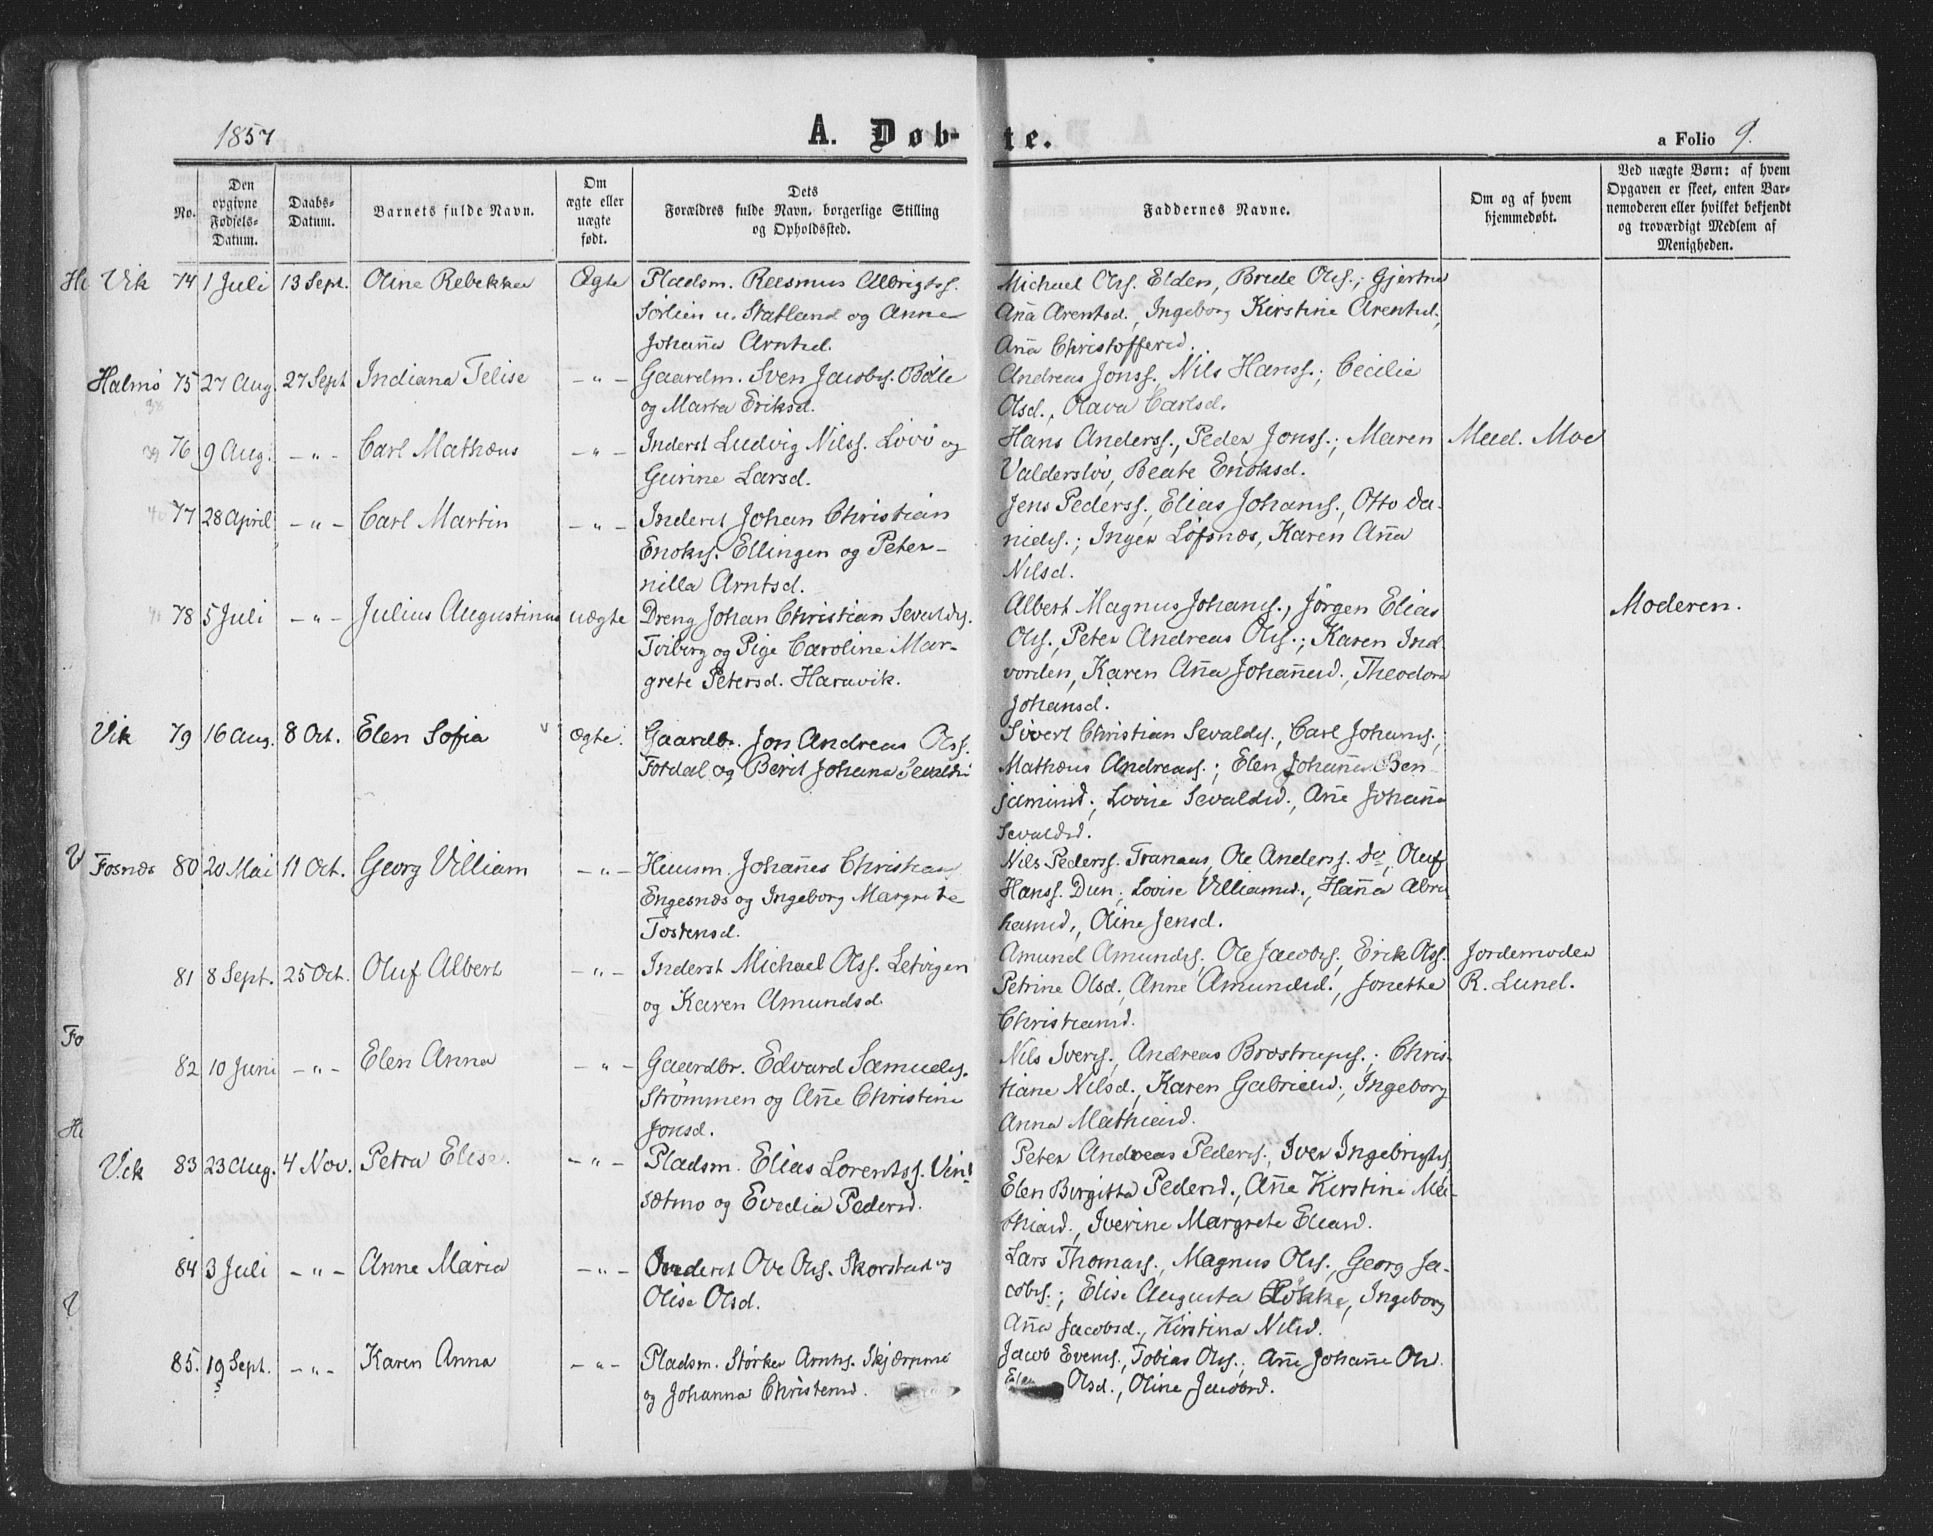 1857
A. Døb- te.
a Folio 9.
No.
Den opgivne Fødsels-Datum.
Daabs-Datum.
Barnets fulde Navn.
Om ægte eller uægte født.
Dets Forældres fulde Navn, borgerlige Stilling og Opholdssted.
Faddernes Navne.
Om og af hvem hjemmedøbt.
Ved uægte Børn: af hvem Opgaven er skeet, enten Barnemoderen eller hvilket bekjendt og troværdigt Medlem af Menigheden.
Vik 74 1 Juli 13 Sept. Oline Rebekka Ægte Pladsm. Rasmus Albrigts.
Sørlien u. Statland og Anne
Johaña Arntsd.
Michael Ols. Elden, Brede Ols.; Gjertru
Aña Arentsd., Ingeborg Kirstine Arentsd.,
Aña Christoffersd.
Halmö 75 27 Aug. 27 Sept Indiana Telise – " – Gaardm. Sven Jacobs. Böle
og Marta Eriksd.
Andreas Jonss., Nils Hanss.; Cecilie
Olsd., Olava Carlsd.
76 9 Aug. – " – Carl Mathæus – " – Inderst Ludvig Nilss. Lövö og
Gurine Larsd.
Hans Anderss., Peder Jonss.; Maren
Valderslöv, Beate Enoksd.
Mad. Moe
77 28 April – " – Carl Martin – " – Inderst Johan Christian
Enoks. Ellingen og Peter-
nilla Arntsd.
Jens Pederss., Elias Johans., Otto Da-
niels.; Inger Löfsnæs, Karen Aña
Nilsd.
78 5 Juli – " – Julius Augustinus uægte Dreng Johan Christian Sevalds.
Tviberg og Pige Caroline Mar-
grete Petersd. Haravik.
Albert Magnus Johans., Jörgen Elias
Ols., Peter Andreas Ols.; Karen Ind-
vorden, Karen Aña Johañesd., Theodora
Johansd.
Moderen.
Vik 79 16 Aug. 8 Oct. Elen Sofia Ægte. Gaardbr. Jon Andreas Olss.
Fotdal og Berit Johana Sevaldsd
Sivert Christian Sevalds., Carl Johans.,
Mathæus Andreas.; Elen Johaña Ben-
jaminsd., Lovise Sevaldsd., Añe Johaña
Sevaldsd.
Fosnæs 80 20 Mai 11 Oct. Georg Villiam – " – Huusm. Johañes Christian
Engesnæs og Ingeborg Margrete
Tostensd.
Nils Pederss. Tranaas, Ole Anderss. do, Oluf
Hanss. Dun; Lovise Villiamsd., Haña Abra-
hamsd., Oline Jensd.
81 8 Sept. 25 Oct. Oluf Albert – " – Inderst Michael Olss. Letvigen
og Karen Amundsd
Amund Amunds., Ole Jacobs., Erik Olss.
Petrine Olsd., Anne Amundsd., Jonetta
Christiansd.
Jordemoder
R. Lund.
82 10 Juni – " – Elen Anna – " – Gaardbr. Edvard Samuels.
Strømmen og Añe Christine
Jonsd.
Nils Ivers., Andreas Brostrups.; Chris-
tiane Nilsd., Karen Gabrielsd., Ingeborg
Anna Mathiasd.
Vik 83 23 Aug. 4 Nov. Petra Elise. – " – Pladsm. Elias Lorentss. Vin-
sætmo og Evedia Pedersd.
Peter Andreas Peders., Iver Ingebrigts,
Elen Birgitta Pedersd., Añe Kirstine Ma-
thiasd., Iverine Margrete Eliasd.
84 3 Juli – " – Anne Maria – " – Inderst Ove Ols. Skorstad og
Olise Olsd.
Lars Thomas., Magnus Ols., Georg Ja-
cobs.; Elise Augusta Løkke, Ingeborg
Aña Jacobsd., Kirstina Nilsd.
85. 19 Sept. – " – Karen Anna – " – Pladsm. Størker Arnts. Skjærpmo
og Johanna Christensd.
Jacob Evens., Tobias Ols.; Añe Johañe Ols.
Elen Olsd., Oline Jacobsd.